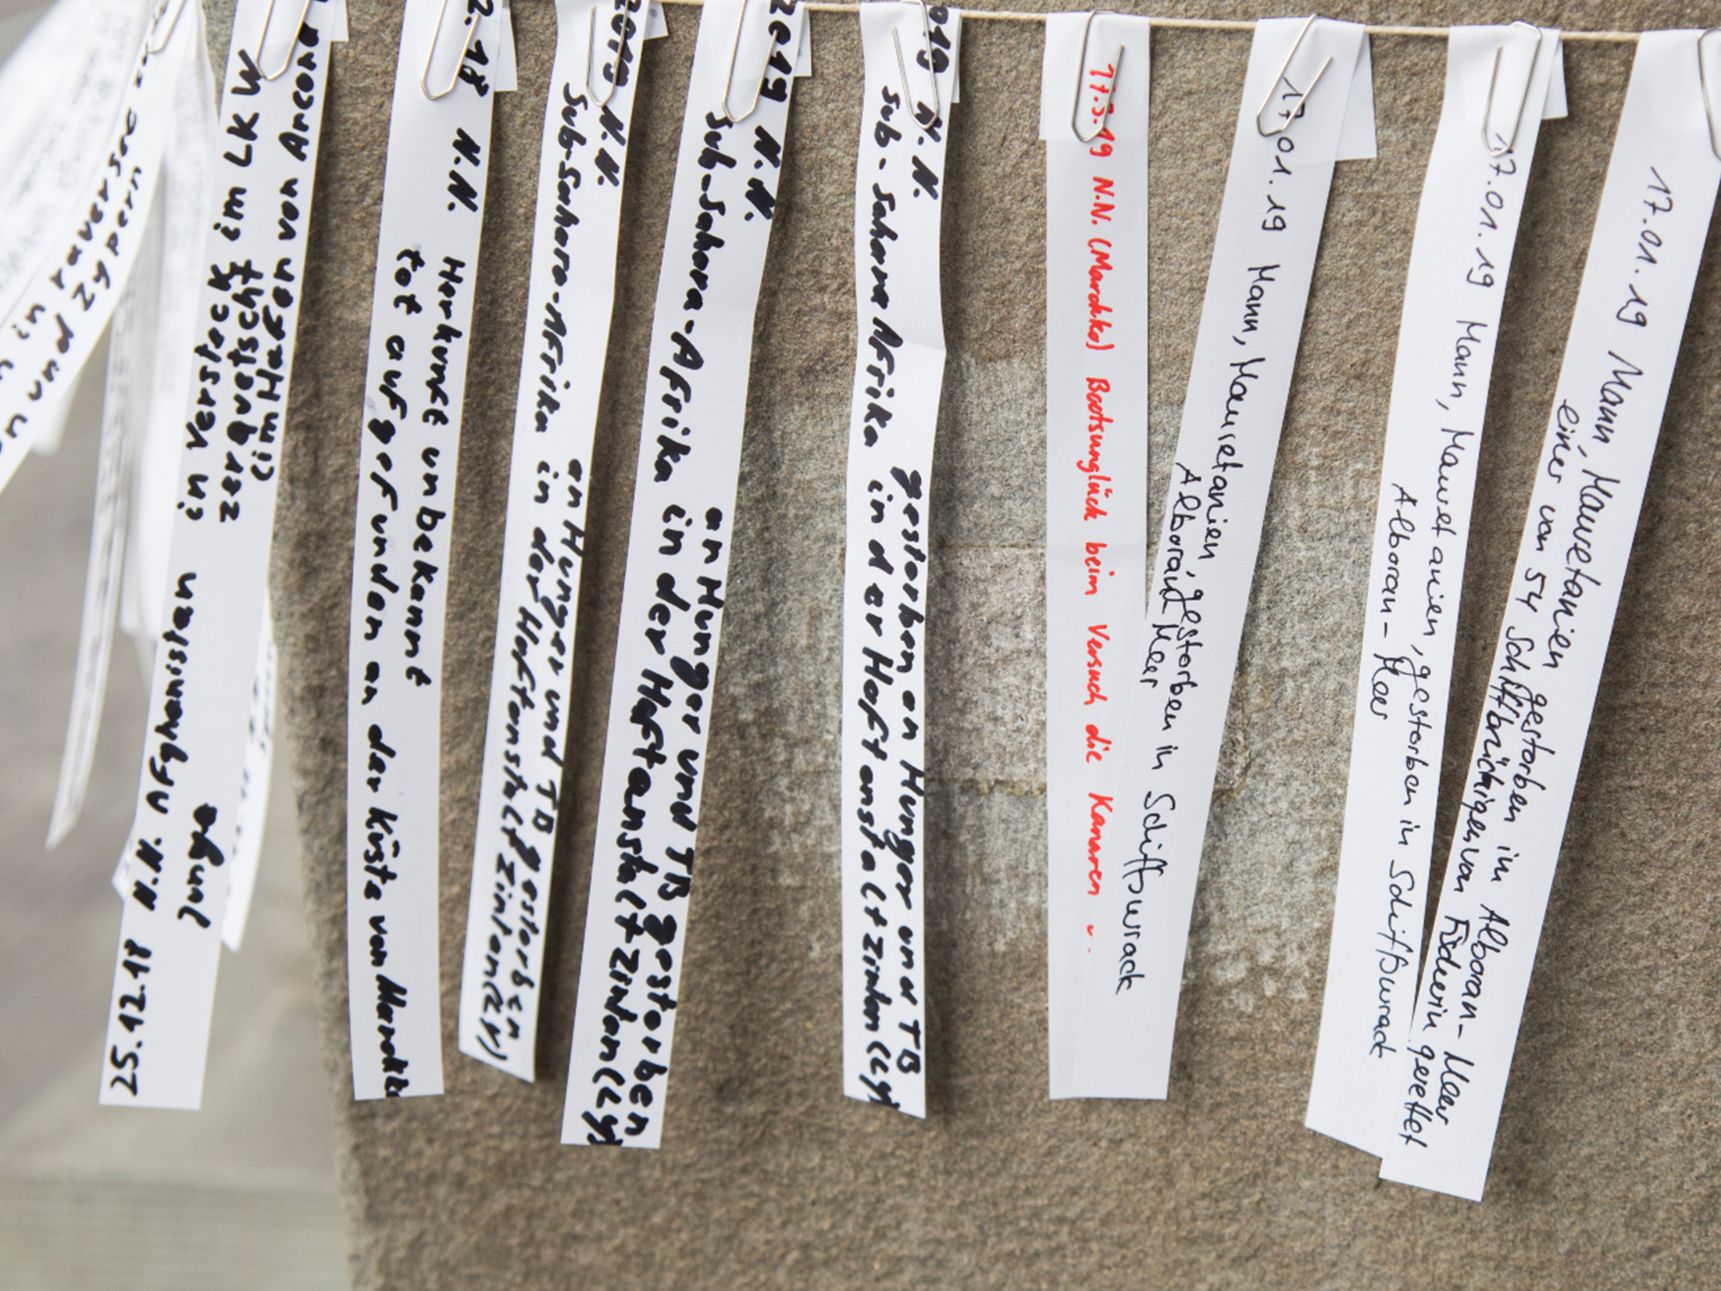 in raversec
und Zypern
25.12.18 N.N. Afghanistan in Versteck im LKW
Junge zerquetscht
(im Hafen von Ancona
2.18 N.N. Herkunft unbekannt
tot aufgefunden an der Küste von Marokko
2019 N.N. an Hunger und TB gestorben
Sub-Sahara-Afrika in der Haftanstalt Zintan (LY)
2019 N.N. an Hunger und TB gestorben
Sub-Sahara-Afrika in der Haftanstalt Zintan (LY)
019 N.N. gestorben an Hunger und TB
Sub-Sahara Afrika in der Haftanstalt Zintan (LY)
17.3.19 N.N. (Marokko) Bootsunglück beim Versuch die Kanaren
17.01.19 Mann, Mauretanien, gestorben in Schiffswrack
Alboran Meer
17.01.19 Mann, Mauretanien, gestorben in Schiffswrack
Alboran-Meer
17.01.19 Mann, Mauretanien gestorben im Alboran-Meer
einer von 54 Schiffbrüchigen von gerettet